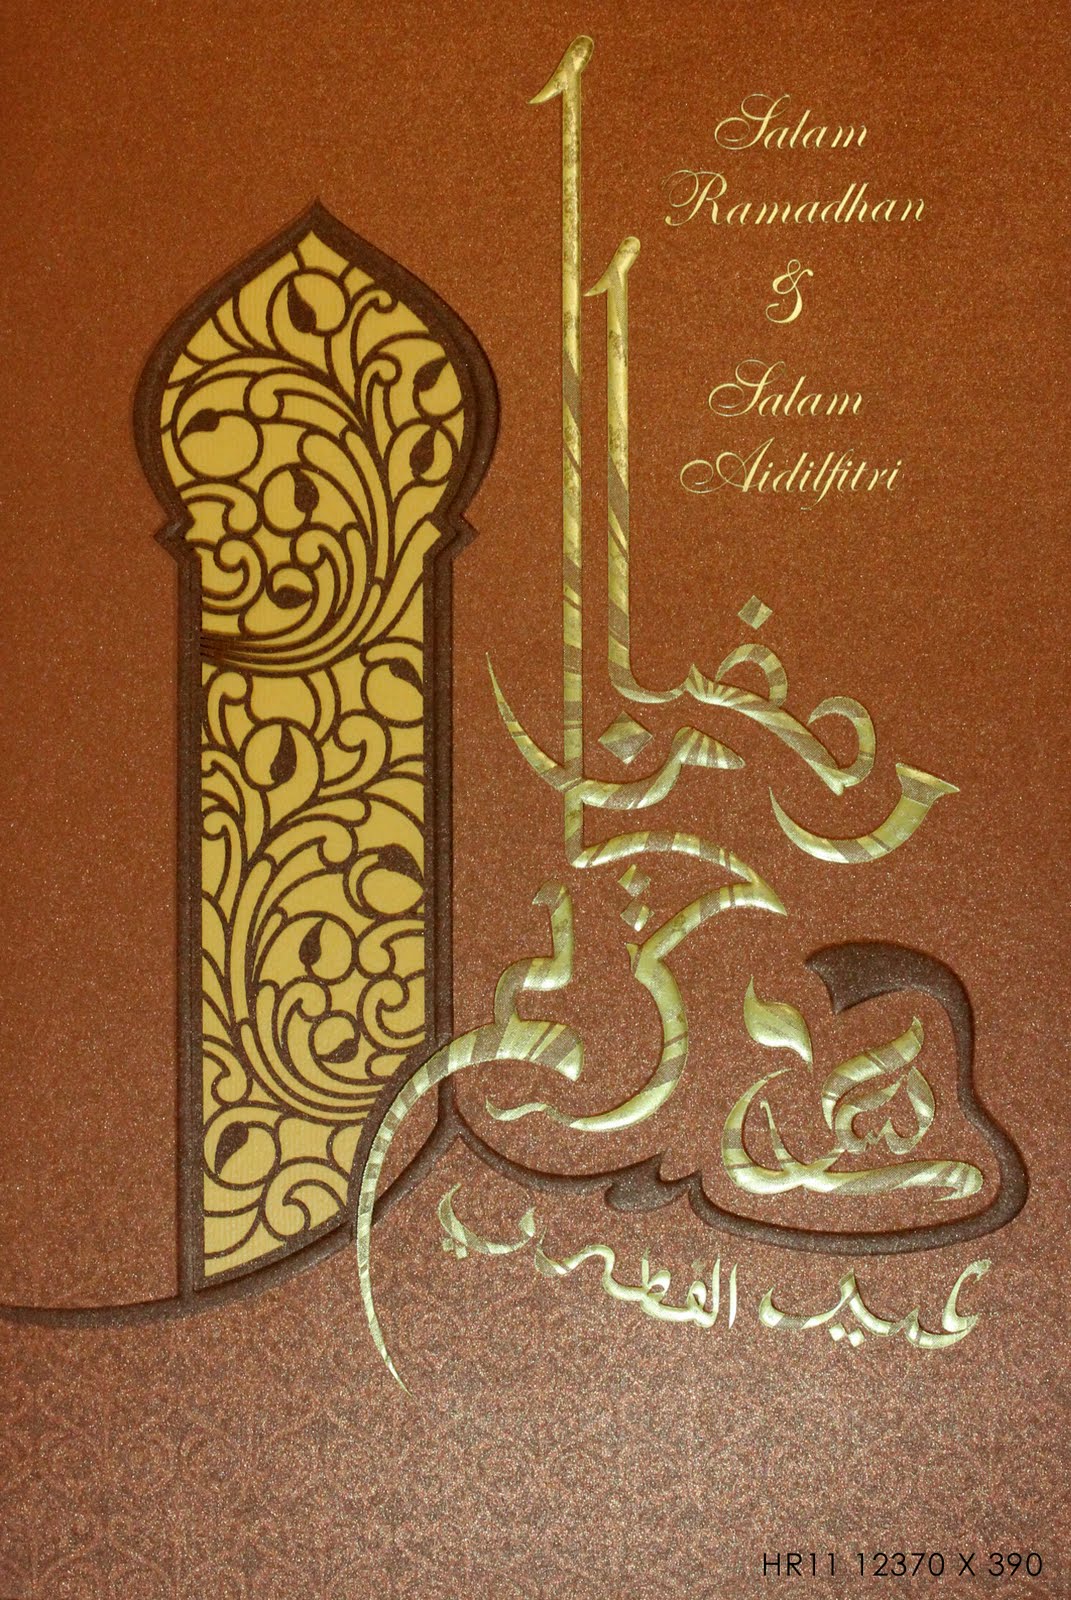 Salam
Ramadhan
&
Salam
Aidilfitri
رمضان
كريم
عيد الفطري
HR11 12370 X 390